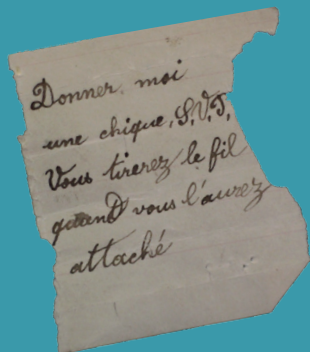 Donner moi
une chique, S.V.T,
Vous tirerez le fil
quand vous l'aurez
attaché